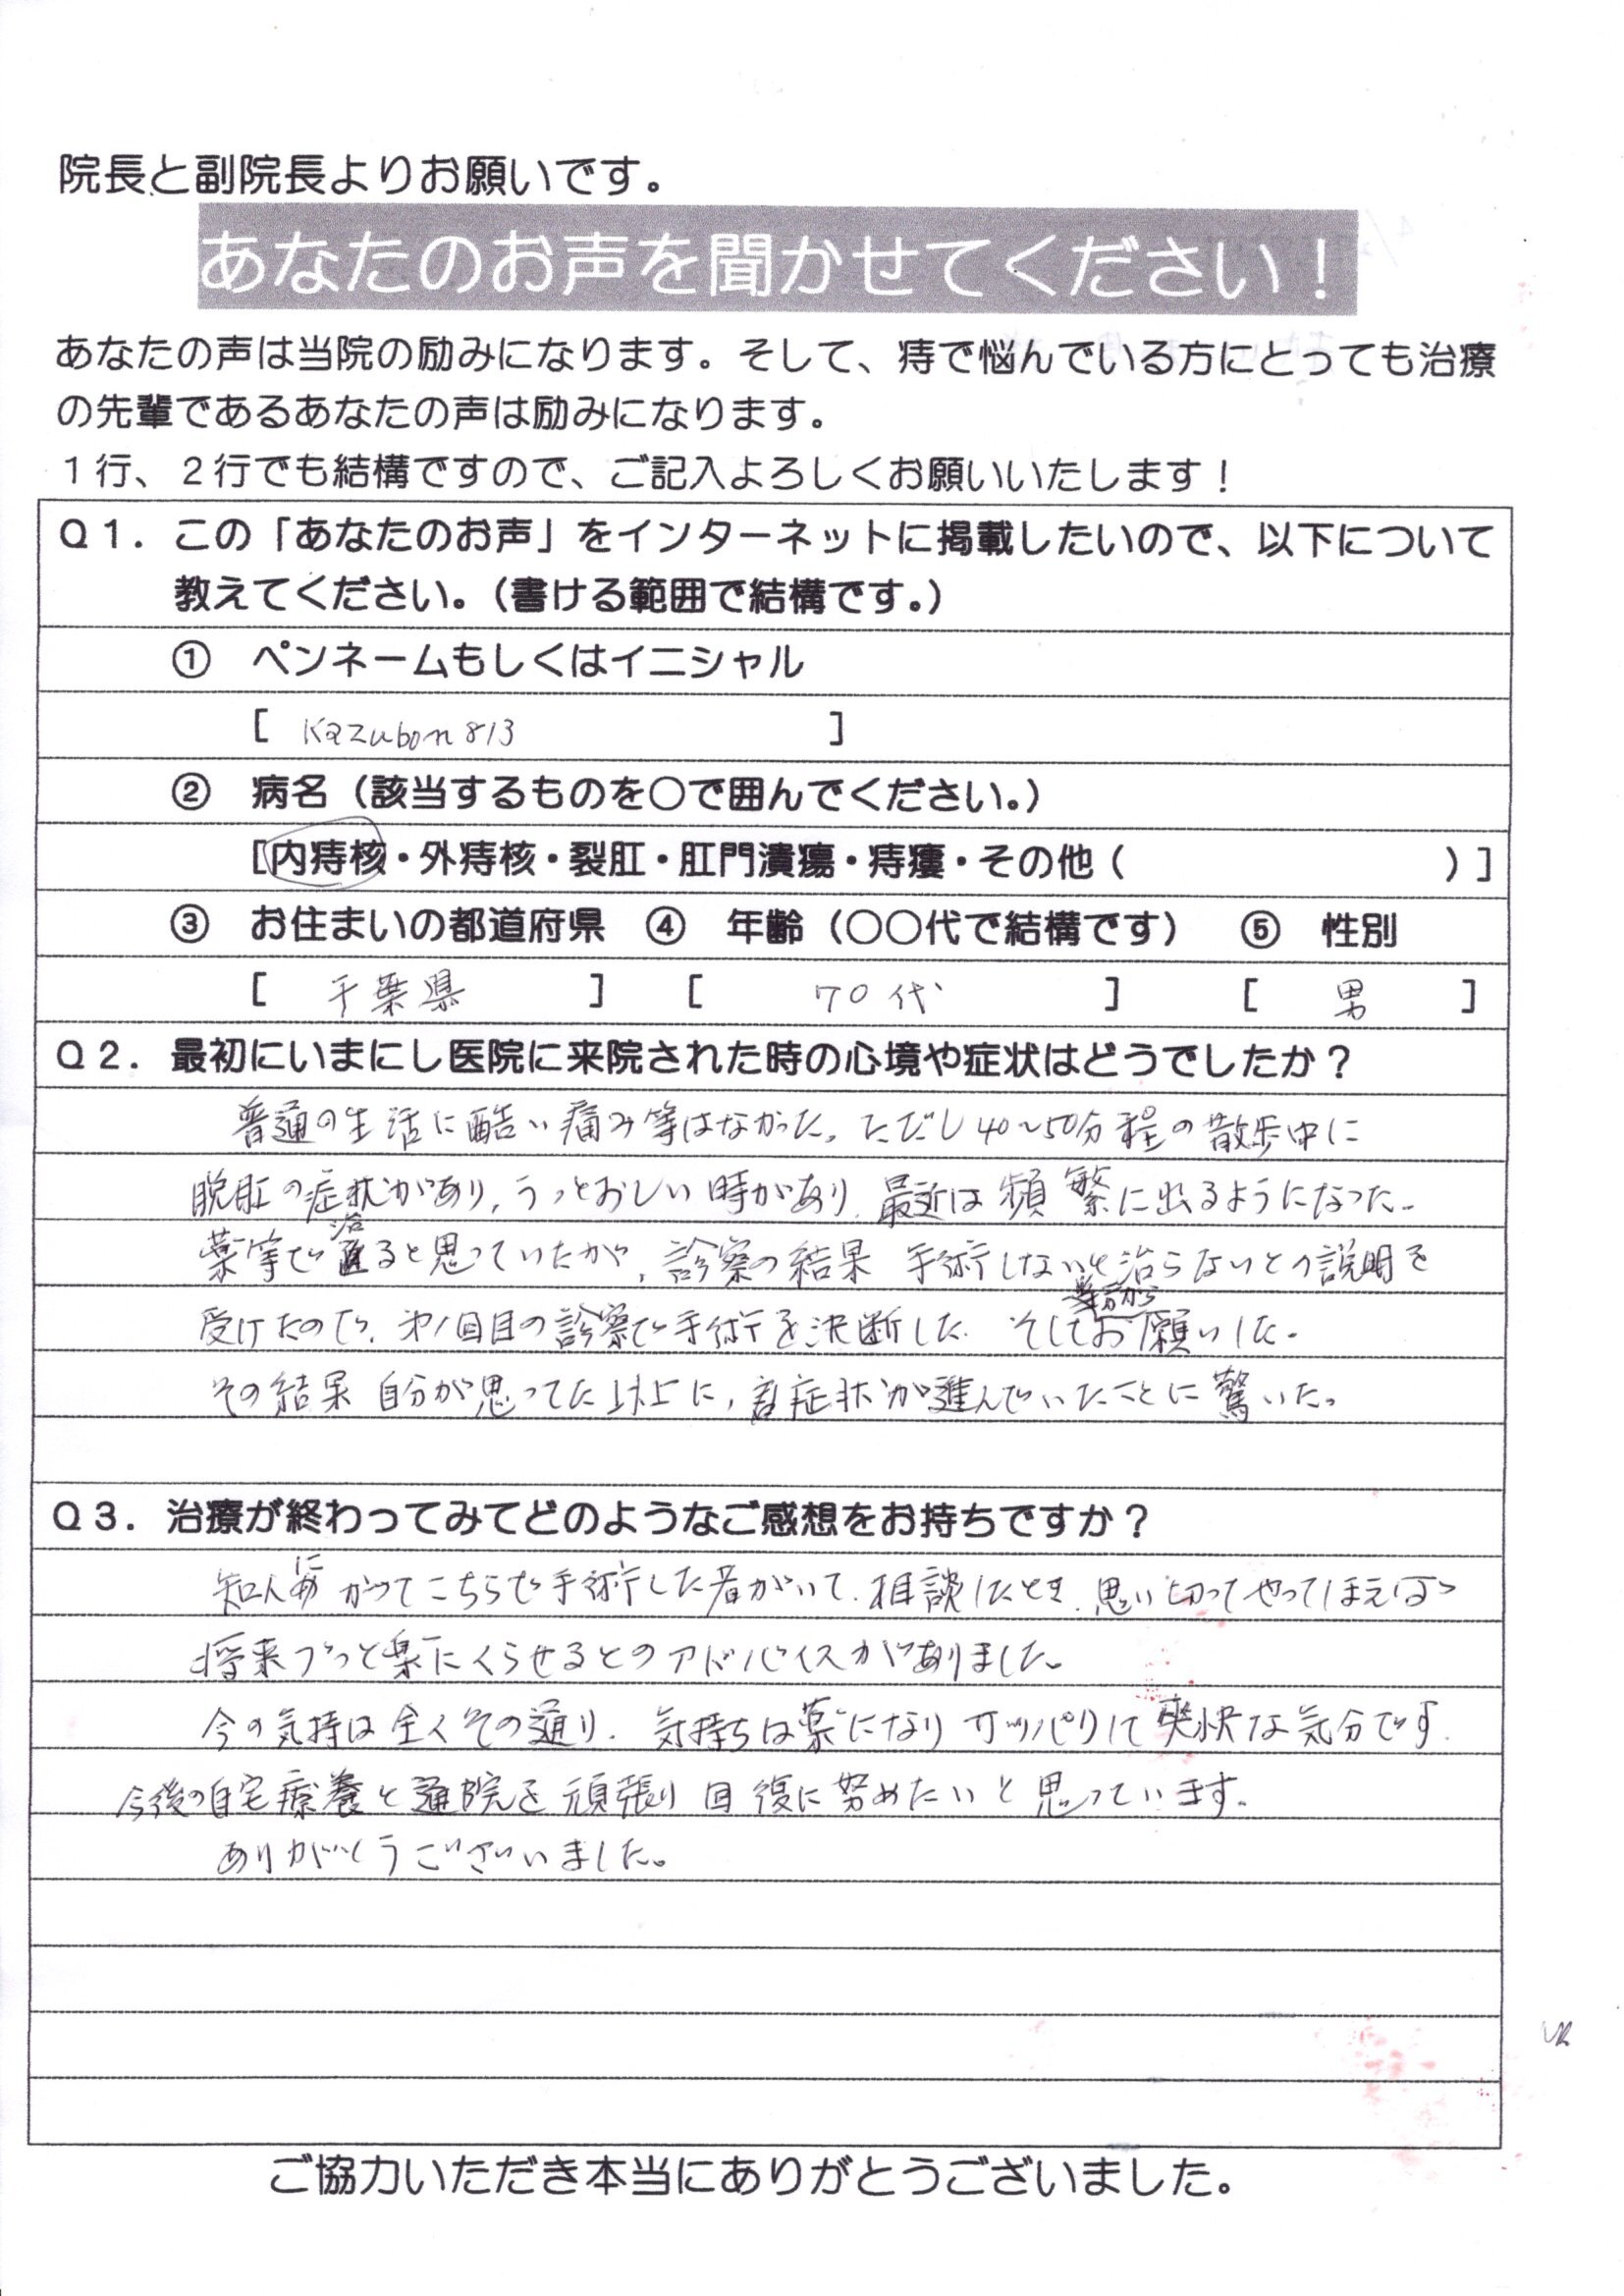 院長と副院長よりお願いです。
あなたのお声を聞かせてください！
あなたの声は当院の励みになります。そして、痔で悩んでいる方にとっても治療
の先輩であるあなたの声は励みになります。
１行、２行でも結構ですので、ご記入よろしくお願いいたします！
Ｑ１．この「あなたのお声」をインターネットに掲載したいので、以下について
教えてください。（書ける範囲で結構です。）
①　ペンネームもしくはイニシャル
[ Kazubon813 ]
②　病名（該当するものを○で囲んでください。）
[内痔核・外痔核・裂肛・肛門潰瘍・痔瘻・その他（　　　）]
③　お住まいの都道府県　④　年齢（○○代で結構です）　⑤　性別
[ 千葉県 ] [ 70代 ] [ 男 ]
Ｑ２．最初にいまにし医院に来院された時の心境や症状はどうでしたか？
普通の生活に酷い痛み等はなかった。ただし40～50分程の散歩中に
脱肛の症状があり、うっとおしい時があり、最近は頻繁に出るようになった。
薬等で治ると思っていたが、診察の結果 手術しないと治らないとの説明を
受けたので、オ1回目の診察で手術を決断した。そして自分からお願いした。
その結果 自分が思ってた以上に、症状が進んでいたことに驚いた。
Ｑ３．治療が終わってみてどのようなご感想をお持ちですか？
知人に かつてこちらで手術した者がいて、相談したとき、思い切ってやってしまえば
将来ずっと楽にくらせるとのアドバイスがありました。
今の気持は全くその通り、気持ちは楽になりサッパリして爽快な気分です。
今後の自宅療養と通院を頑張り回復に努めたいと思っています。
ありがとうございました。
ご協力いただき本当にありがとうございました。